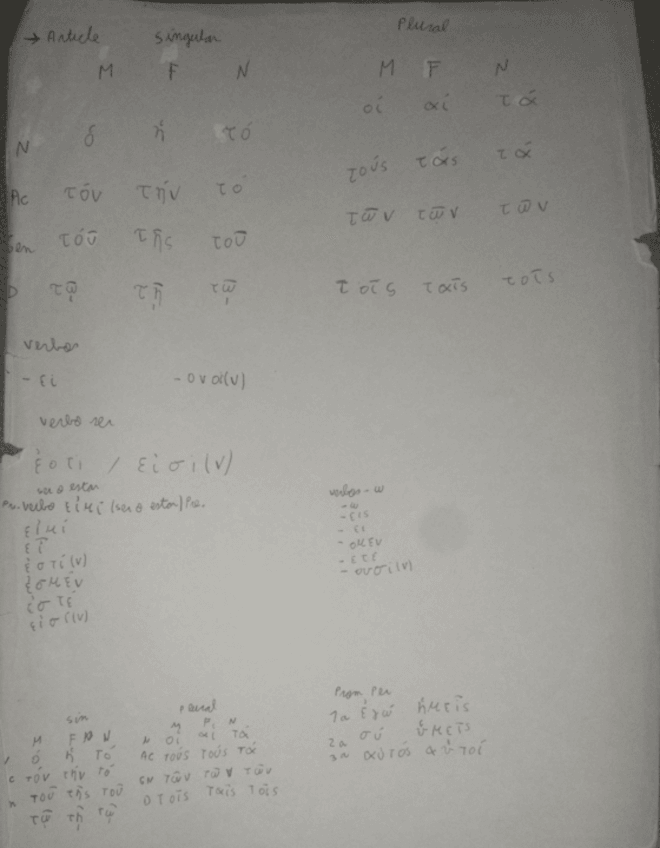 → Article Singular Plural
M F N M F N
οἱ αἱ τά
N ὁ ἡ τό
τούς τάς τά
Ac τόν τήν τό
τῶν τῶν τῶν
Gen τόῦ τῆς τοῦ
D τῷ τῇ τῷ τοῖς ταῖς τοῖς
verbos
- ει - ουσι(ν)
verbo ser
ἐστι / εἰσι(ν)
ser o estar
Pre. verbo εἰμί (ser o estar) Pre.
εἰμί
εἶ
ἐστί(ν)
ἐσμέν
ἐστέ
εἰσί(ν)
verbos - ω
- ω
- εις
- ει
- ομεν
- ετε
- ουσι(ν)
sin plural
M F N M F N
ὁ ἡ τό N οἱ αἱ τά
τόν τήν τό AC τούς τούς τά
τοῦ τῆς τοῦ GN τῶν τῶν τῶν
τῷ τῇ τῷ D τοῖς ταῖς τοῖς
Pron Per
1a ἐγώ ἡμεῖς
2a σύ ὑμεῖς
3a αὐτός αὐτοί